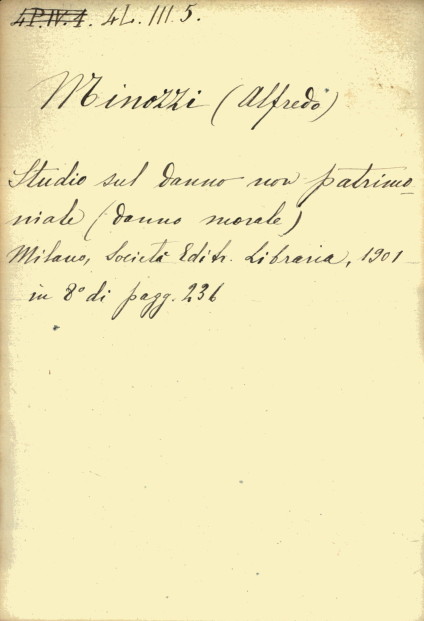 4P.IV.4. 4L.III.5.
Minozzi (Alfredo)
Studio sul danno non patrimo-
niale (danno morale)
Milano, Società Editr. Libraria, 1901
in 8° di pagg. 236